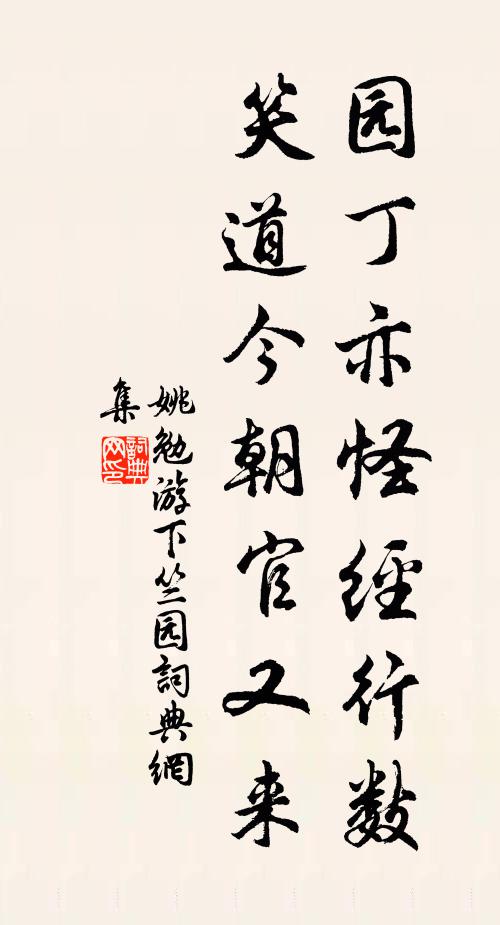 园丁亦怪經行数
笑道今朝官又来
姚勉游下竺园詞典網
集
詞典网印